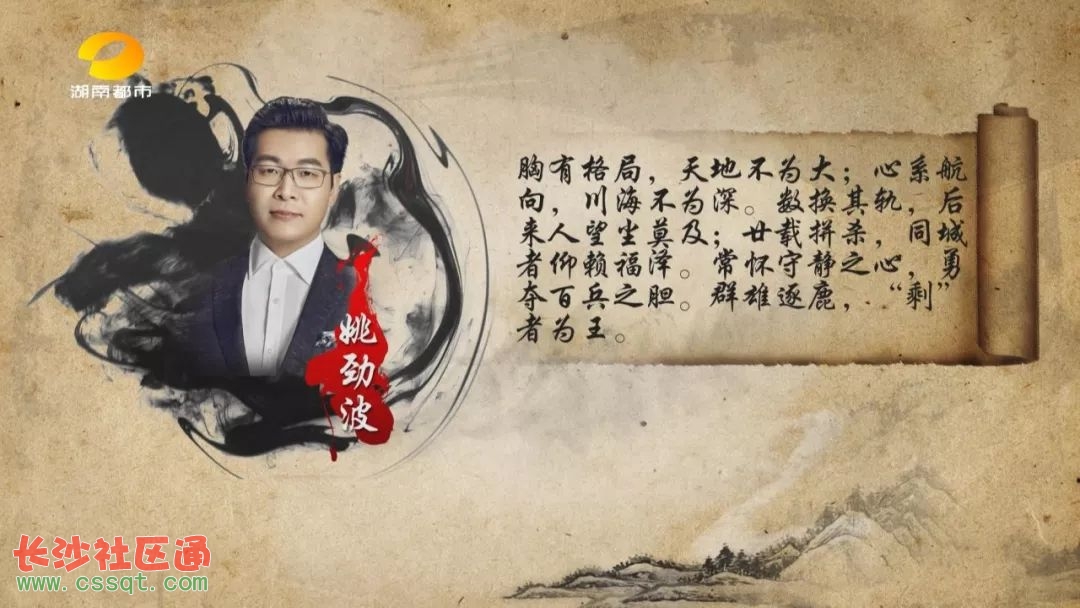 湖南都市
胸有格局，天地不为大；心系航
向，川海不为深。数换其轨，后
来人望尘莫及；廿载拼杀，同城
者仰赖福泽。常怀守静之心，勇
夺百兵之胆。群雄逐鹿，“剩”
者为王。
姚劲波
长沙社区通
www.cssqt.com